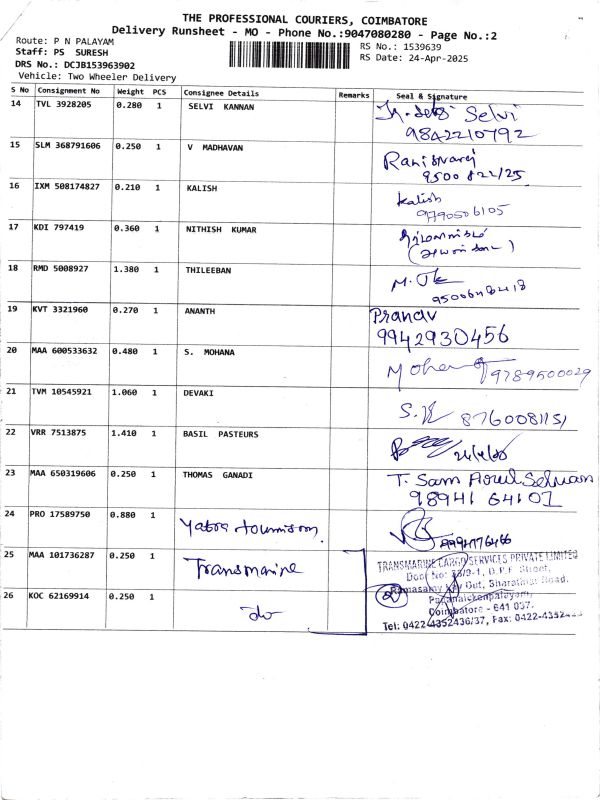 THE PROFESSIONAL COURIERS, COIMBATORE
Delivery Runsheet - MO - Phone No.:9047080280 - Page No.:2
Route: P N PALAYAM
Staff: PS SURESH
DRS No.: DCJB153963902
Vehicle: Two Wheeler Delivery
RS No.: 1539639
RS Date: 24-Apr-2025
S No Consignment No Weight PCS Consignee Details Remarks Seal & Signature
14 TVL 3928205 0.280 1 SELVI KANNAN Selvi
9842210792
15 SLM 368791606 0.250 1 V MADHAVAN
9500822125
16 IXM 508174827 0.210 1 KALISH Kalish
9790506105
17 KDI 797419 0.360 1 NITHISH KUMAR
18 RMD 5008927 1.380 1 THILEEBAN
19 KVT 3321960 0.270 1 ANANTH Pranav
9942930456
20 MAA 600533632 0.480 1 S. MOHANA 9789500029
21 TVM 10545921 1.060 1 DEVAKI 8760081151
22 VRR 7513875 1.410 1 BASIL PASTEURS
23 MAA 650319606 0.250 1 THOMAS GANADI T. Sam Arul Selvan
98941 64107
24 PRO 17589750 0.880 1 Yatra tourism
25 MAA 101736287 0.250 1 Transmarine
26 KOC 62169914 0.250 1 do
TRANSMARINE CARGO SERVICES PRIVATE LIMITED
Street,
Ramasamy Lay Out, Bharathi Road,
Papanaickenpalayam,
Coimbatore - 641 037.
Tel: 0422-4352436/37, Fax: 0422-4352